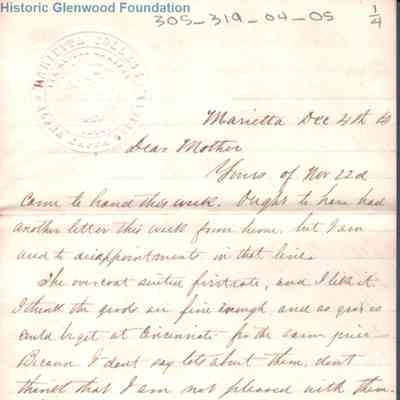 Historic Glenwood Foundation
305-319-04-05
1/4
MARIETTA COLLEGE
Marietta Dec 4th
Dear Mother
Yours of Nov 22d
came to hand this week. Ought to have had
another letter this week from home, but I am
used to disappointments in that line.
The overcoat suited first rate, and I like it.
I think the goods are fine enough and as good as
could be got at Cincinnati for the same price
Because I don't say lots about them, don't
think that I am not pleased with them.